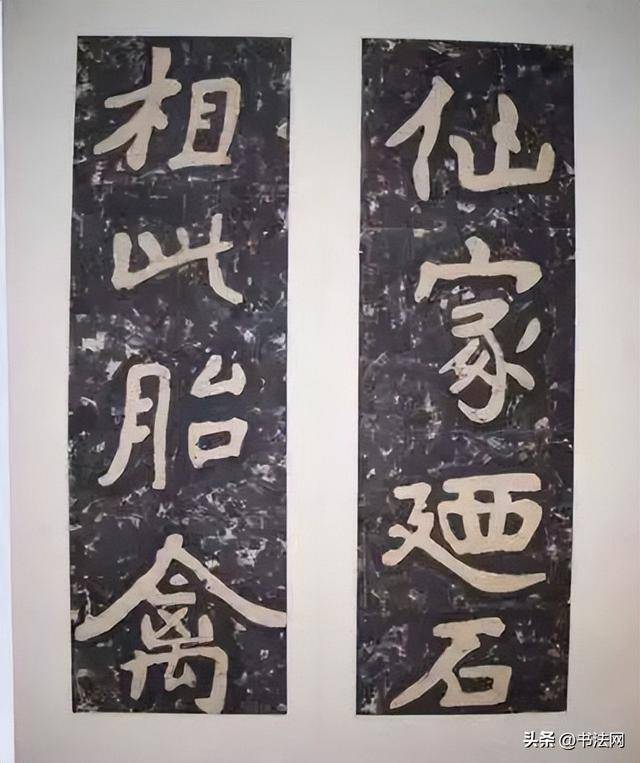 仙家廼石
相此胎禽
头条 @书法网